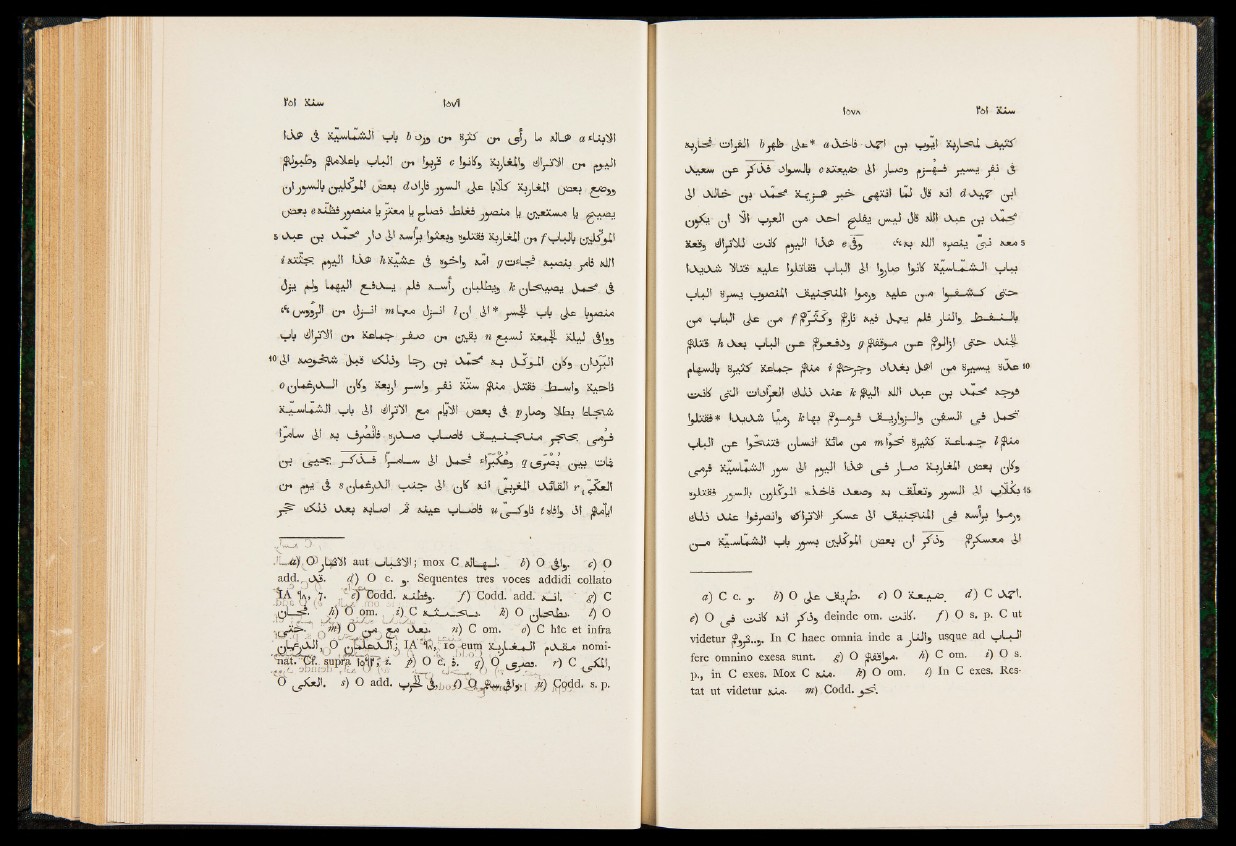 ١٥٧٨ سنة ٢٥١
كثيف لمحاربة ايّوب بن احمد فاخذ a *على ظهر b الفرات فحاربه
في نفر يسير فهُزم وصار الى ضيعته c بالسواد فذُكر عن سعيد
بن حميد d انه قال لمّا انتهى خبر هزيمة محمد بن خالد الى
محمد بن عبد الله قال ليس يفلح احد من العرب الّا ان يكون
5 معه نبيّ ينصره الله به،، وفي e هذا اليوم كانت للاتراك وقعة
بباب الشمّاسيّة كانوا صاروا الى الباب فقاتلوا عليه قتالا شديدا
حتى كشفوا من عليه ورموا المنجنيق المنصوب بيسرة الباب
بالنفط والنار فلم يعمل فيه نارهم وكثّرهم f من على الباب من
الجند حتى ازالوهم عن موقفهم g ودفعوهم عن الباب بعد h قتلهم
10 عدّة يسيرة من اهل بغداد وجرحهم i منهم جماعة كثيرة بالسهام
فوجّه محمد بن عبد الله اليهم k عند ذلك العرّادات التي كانت
تحمل في السفن والزواريق فرموهم بها k رميا شديدا *فقتلوا
منهم l جماعة كثيرة نحوا m من مائة انسان فتنحّوا عن الباب
وكان بعض المغاربة صار في هذا اليوم الى سور الشمّاسيّة فرمى
15 بكُلّاب الى السور وتعلّق به وصعد فاخذه الموكّلون بالسور فقتلوه
ورموا برأسه في المنجنيق الى عسكر الاتراك وانصرفوا عند ذلك
الى معسكرهم وذُكر ان بعض الموكّلين بسور باب الشمّاسيّة من
a) C c. و. b) O طريف على. c) O . d) C احمد.
e) O وذكر انه كانت في deinde om. كانت. f) O s. p. C ut
videtur . In C haec omnia inde a والنار usque ad الباب
fere omnino exesa sunt. g) O مواقفهم. h) C om. i) O s.
p., in C exes. Mox C منه. k) O om. l) In C exes. Res-
tat ut videtur منه. m) Codd. نحو.
١٥٧٩ سنة ٢٥١
الابناء a هاله ما رأى من كثرة من ورد b باب الشمّاسيّة في هذا
اليوم من الاتراك والمغاربة وكانوا c قربوا من الباب باعلامهم وطبولهم
ووضع بعض المغاربة كُلّابا على السور فاراد d بعض الموكّلين بالسور ان
يصيح يا مستعين يا منصور فغلط فصاح يا معتزّ يا منصور فظنّه e بعض
5 الموكّلين بالباب f من المغاربة فقتلوه وبعثوا برأسه الى دار محمد بن عبد
الله فامر بنصبه فجاءت g امّه واخوه في عشيّة h هذا اليوم بجثّته i
في محمل يصيحان k ويطلبان رأسه فلم يدفع اليهما ولم يزل
منصوبا على باب الجسر *الى ان l انزل معما m انزل من الرؤوس،،
ووافى ليلة الجمعة لسبع n بقين من صفر جماعة من الاتراك باب
10 البَرَدان وكان الموكّل به محمد بن رجا وذلك قبل شخوصه الى
ناحية واسط فقتل منهم ستّة نفر واسر اربعة وكان الدرغمان o
شجاعا بطلا وصار p في بعض الايّام مع الاتراك الى باب الشمّاسيّة
فرُمي بحجر منجنيق فاصاب صدره فانصُرف به الى سامرّا
فمات بين بُصْرَى q وعُكْبَراء فحمل الى سامرّا فذكر يحيى بن
العكّي r القائد المغربيّ انه كان الى جنب الدرغمان s في يوم من
ايّامهم اذ وافاه t ناوكيّ u فاصاب عينه ثم اصابه بعد ذلك حجر
a) O الانبار aut ; mox C . b) O وفي. c) O
add. قد. d) O c. و. Sequentes tres voces addidi collato
IA ٩٨, 7. e) Codd. وظنه. f) Codd. add. انه. g) C
. h) O om. i) C . k) O يطلبان. l) O
حتى. m) O بعد مع من. n) C om. o) C hic et infra
, O ; IA ٩٨, 10 eum مقدم المغاربة nomi-
nat. Cf. supra . p) O c. ف. q) O بصرى. r) C ,
O العكي. s) O add. في الحرب. t) O وافى. u) Codd. s. p.